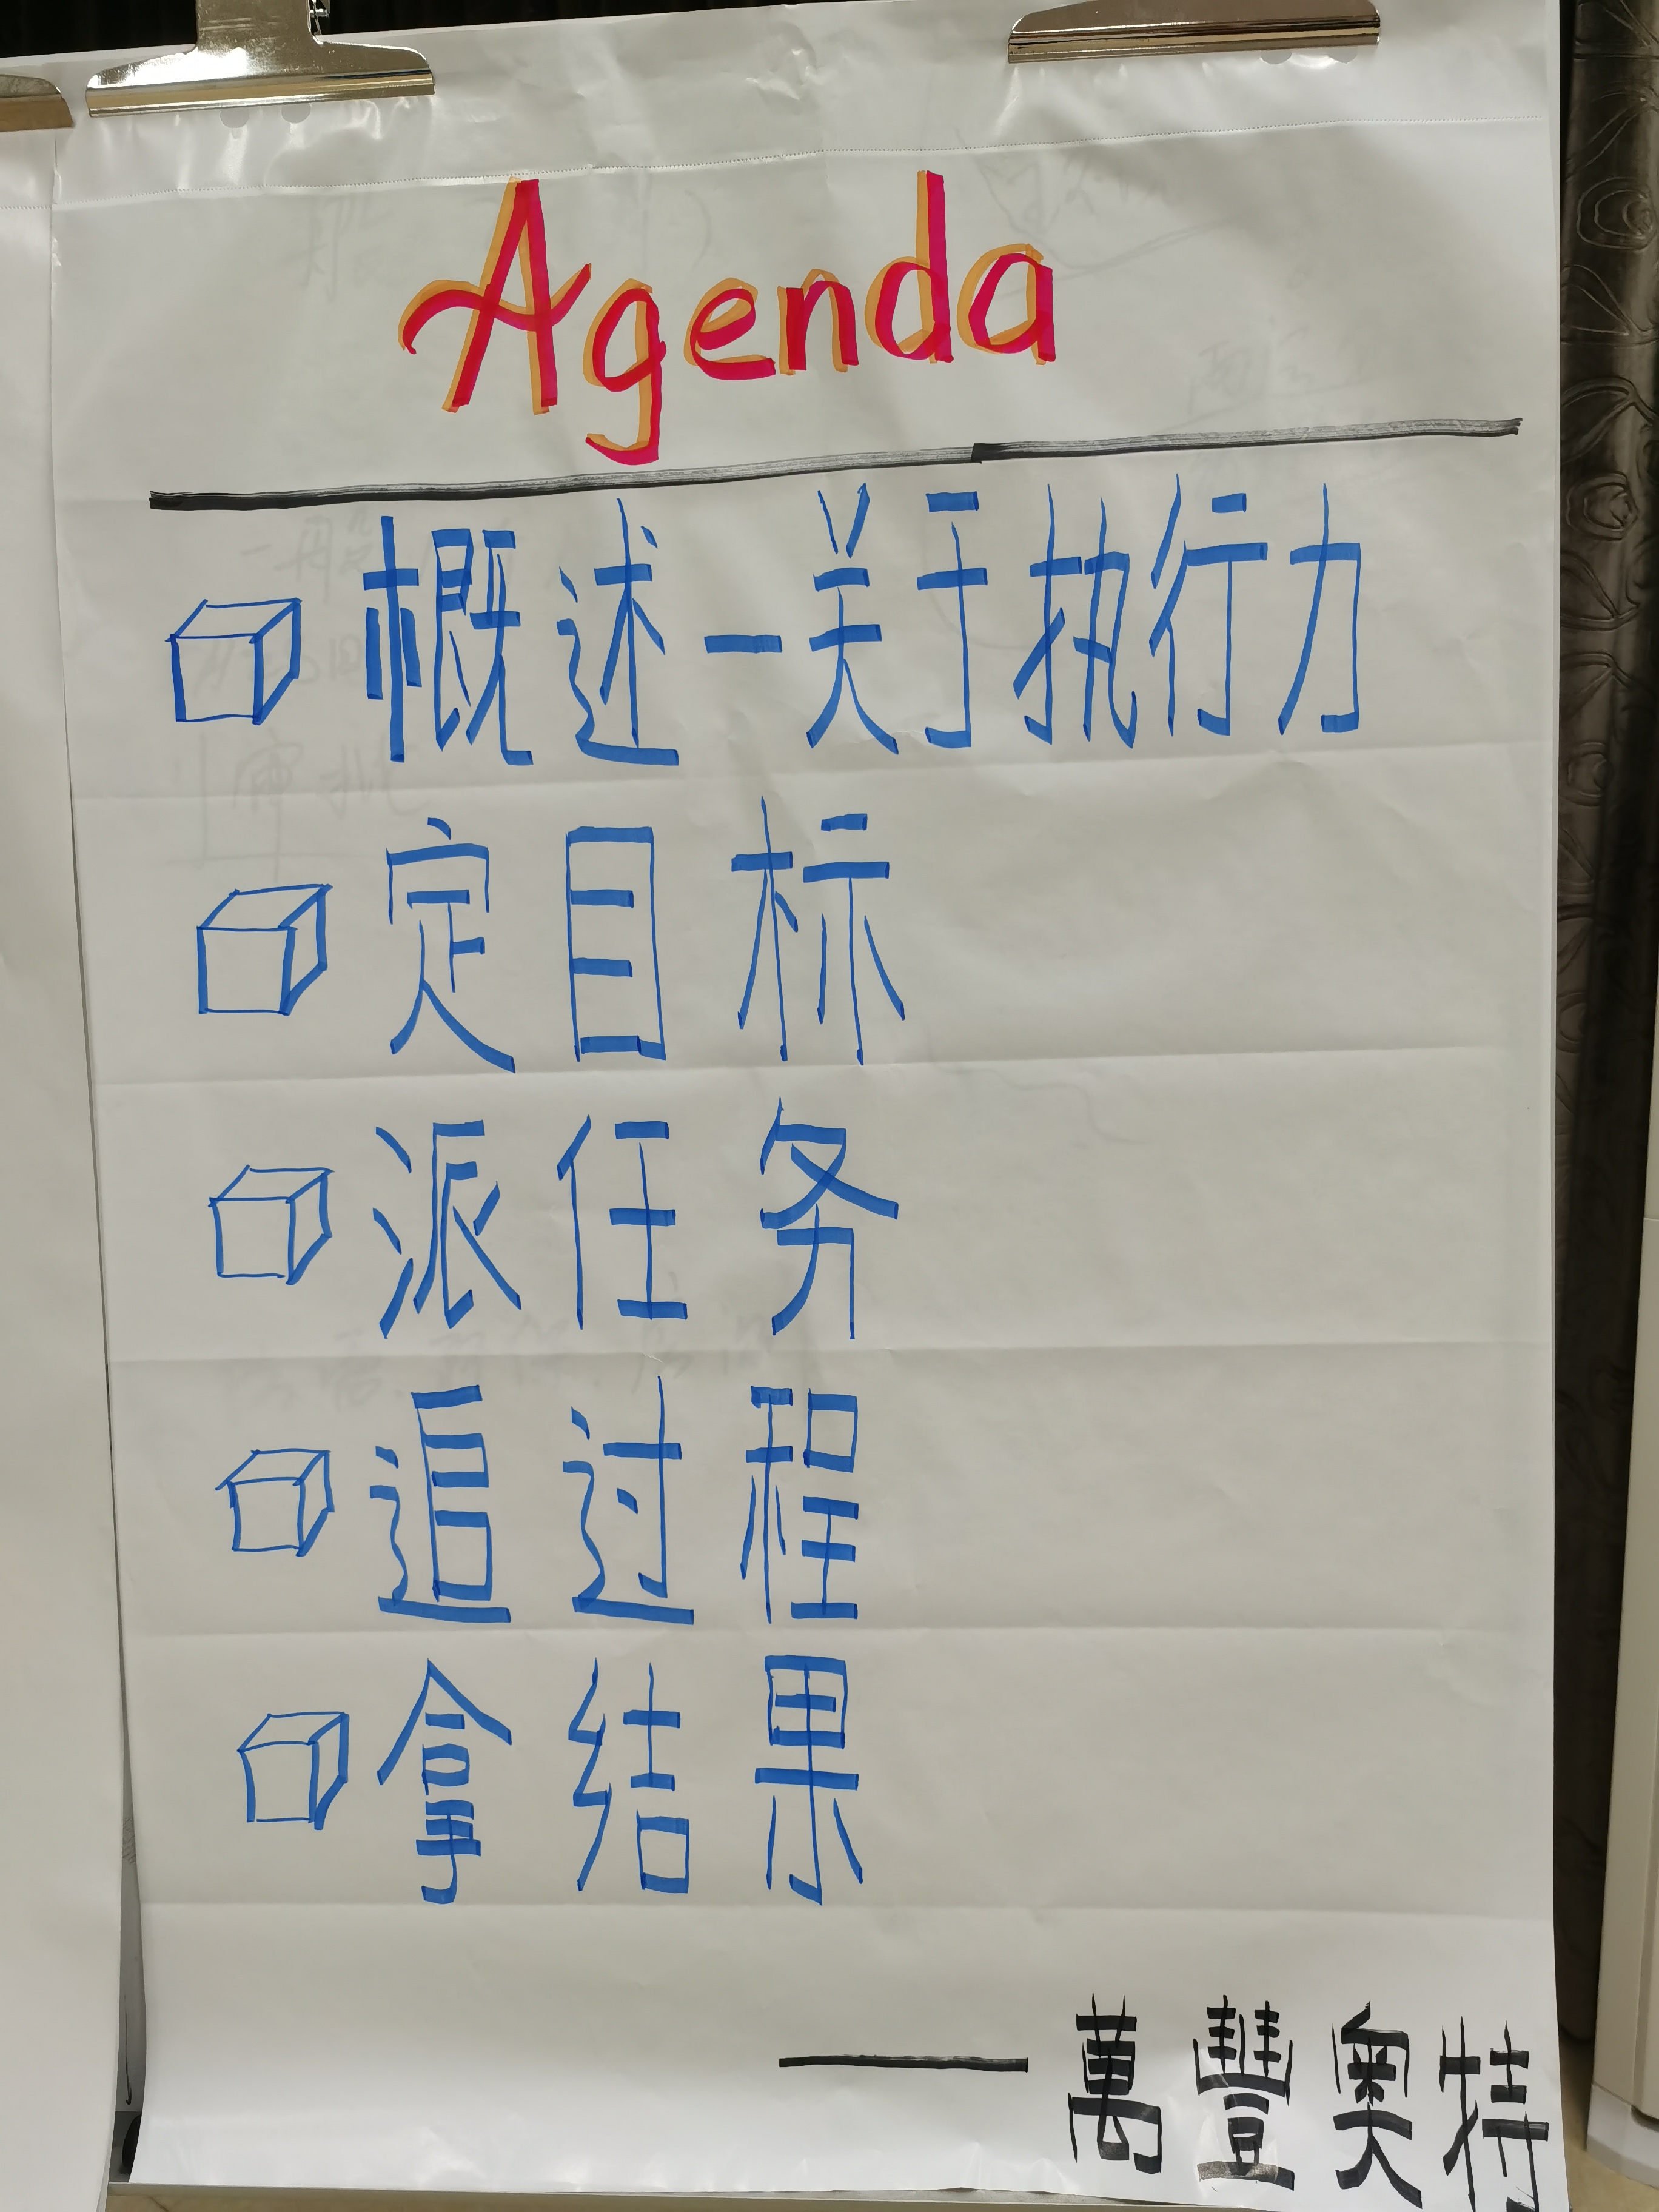 Agenda
概述-关于执行力
定目标
派任务
追过程
拿结果
——萬豐奥特